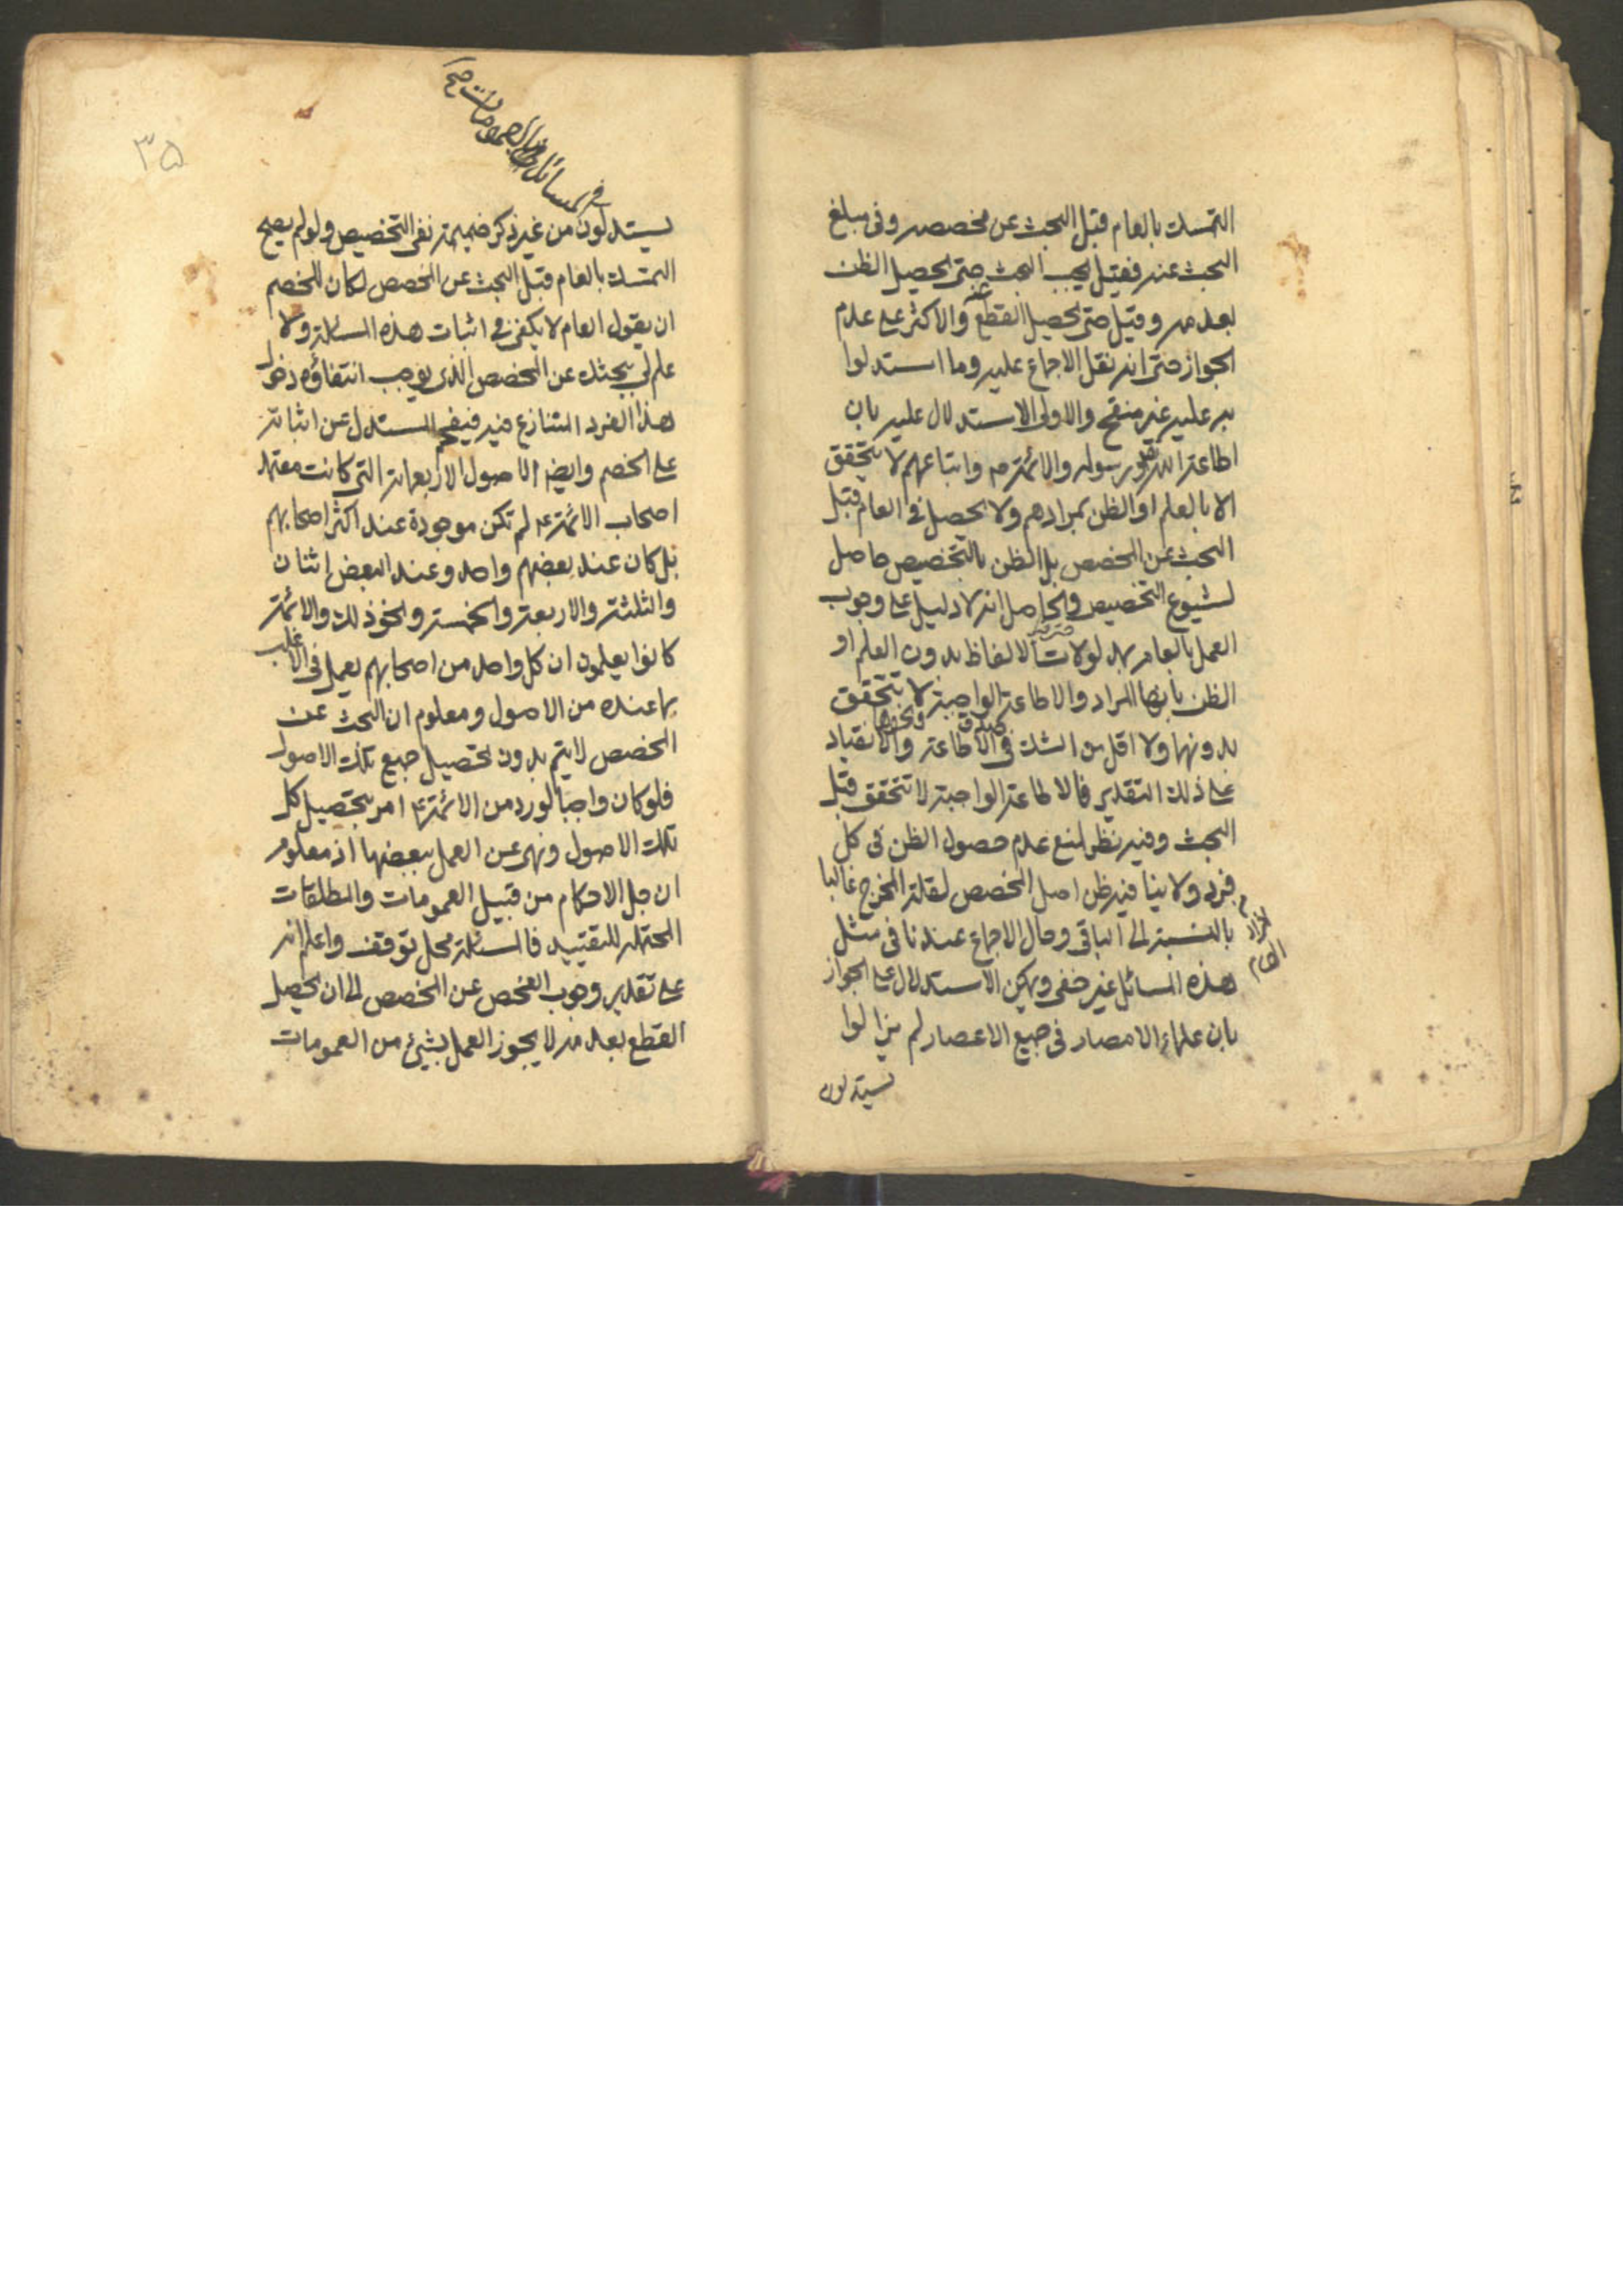 التمسك بالعام قبل البحث عن مخصصه وفي مبلغ
البحث عنه فقيل يجب البحث حتى يحصل الظن
بعدمه وقيل حتى يحصل القطع والاكثر على عدم
الجواز حتى انه نقل الاجماع عليه وما استدلوا
به عليه غير منقح والاولى الاستدلال عليه بان
اطاعة الله ورسوله والائمة واتباعهم لا يتحقق
الا بالعلم او الظن بمرادهم ولا يحصل في العام قبل
البحث عن المخصص بل الظن بالتخصيص حاصل
لشيوع التخصيص والحاصل انه لا دليل على وجوب
العمل بالعام بمدلولات الالفاظ بدون العلم او
الظن بانها المراد والاطاعة الواجبة لا يتحقق
صدق ونحوها
بدونها ولا اقل من الشك في الاطاعة والانقياد
على ذلك التقدير فالاطاعة الواجبة لا تتحقق قبل
البحث وفيه نظر لمنع عدم حصول الظن في كل
فرد ولا ينافيه ظن اصل المخصص لقلة المخرج غالبا
افراد العام
بالنسبة الى الباقي وحال الاجماع عندنا في مثل
هذه المسائل غير خفي ويمكن الاستدلال على الجواز
بان علماء الامصار في جميع الاعصار لم يزالوا
يستدلون
٣٥
في المسائل بالعمومات صح
يستدلون من غير ذكر ضميمة نفي التخصيص ولو لم يصح
التمسك بالعام قبل البحث عن المخصص لكان للخصم
ان يقول العام لا يكفي في اثبات هذه المسئلة ولا
علم لي ببحثك عن المخصص الذي يوجب انتفاؤه دخول
هذا الفرد المتنازع فيه فيفحم المستدل عن اثباته
على الخصم وايضا الاصول الاربعمائة التي كانت معتمد
اصحاب الائمة ع لم تكن موجودة عند اكثر اصحابهم
بل كان عند بعضهم واحد وعند البعض اثنان
والثلثة والاربعة والخمسة ونحو ذلك والائمة
كانوا يعلمون ان كل واحد من اصحابهم يعمل في الاغلب
بما عنده من الاصول ومعلوم ان البحث عن
المخصص لا يتم بدون تحصيل جميع تلك الاصول
فلو كان واجبا لورد من الائمة ع امر بتحصيل كل
تلك الاصول ونهي عن العمل ببعضها اذ معلوم
ان جل الاحكام من قبيل العمومات والمطلقات
المحتملة للتقييد فالمسئلة محل توقف واعلم انه
على تقدير وجوب الفحص عن المخصص الى ان يحصل
القطع بعدمه لا يجوز العمل بشيئ من العمومات